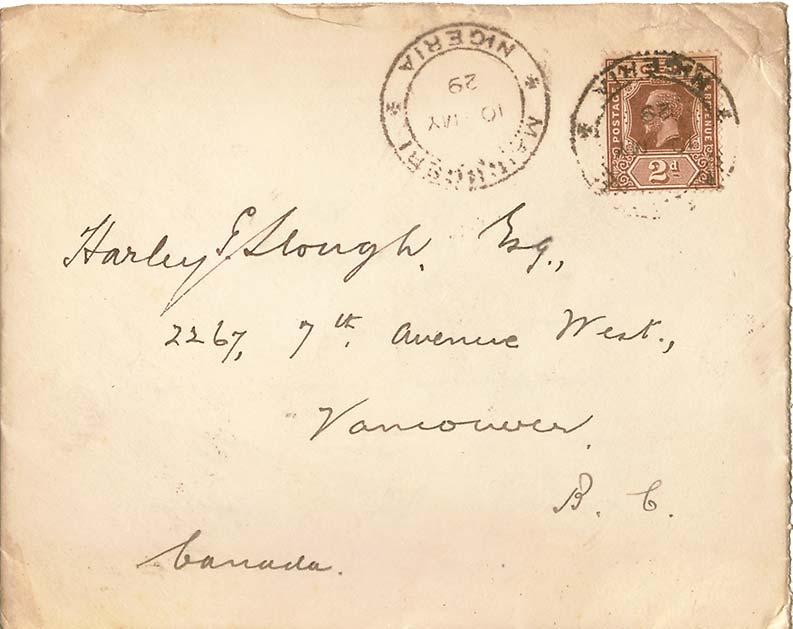 NIGERIA
29
10 MY
MAIDUGURI
NIGERIA
29
POSTAGE
REVENUE
2d
Harley Slough, Esq.,
2267, 7th. Avenue West.,
Vancouver.
B. C.
Canada.